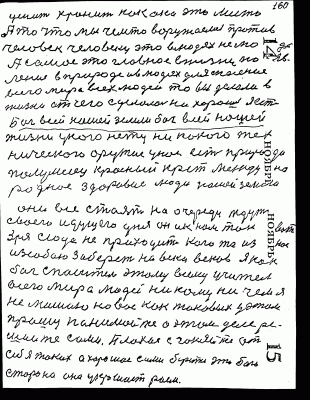 160
учит хранит как она это
А то что мы чемто против
человек человеку это в людях не мо
А самое это главное в жизни по
ление в природе и в людях для спасение
всего мира всех людей то вы делали в
жизни от чего сделался на хорошо Я есть
Бог всей нашей земли бог всей нашей
жизни у кого нету ни какого тех
нического оружие у нас есть природа
полумесец красный крест Междуна
родное здоровие люди нашей земли
14
НОЯБРЬ
они все стоят на очереди ждут
своего идущего дня он их нам там вот
Зря сюда не приходит кого то из нас
изсобою заберет на веки веков Я как
бог спаситель этому всему учител
всего мира людей никому ни чем я
не мешаю новое как таковых этом
прошу понимайте о этом деле ре
шайте сами. Плохое с гоняйте от
себя таких а хорошое сами берите это
сторона она
НОЯБРЬ
15